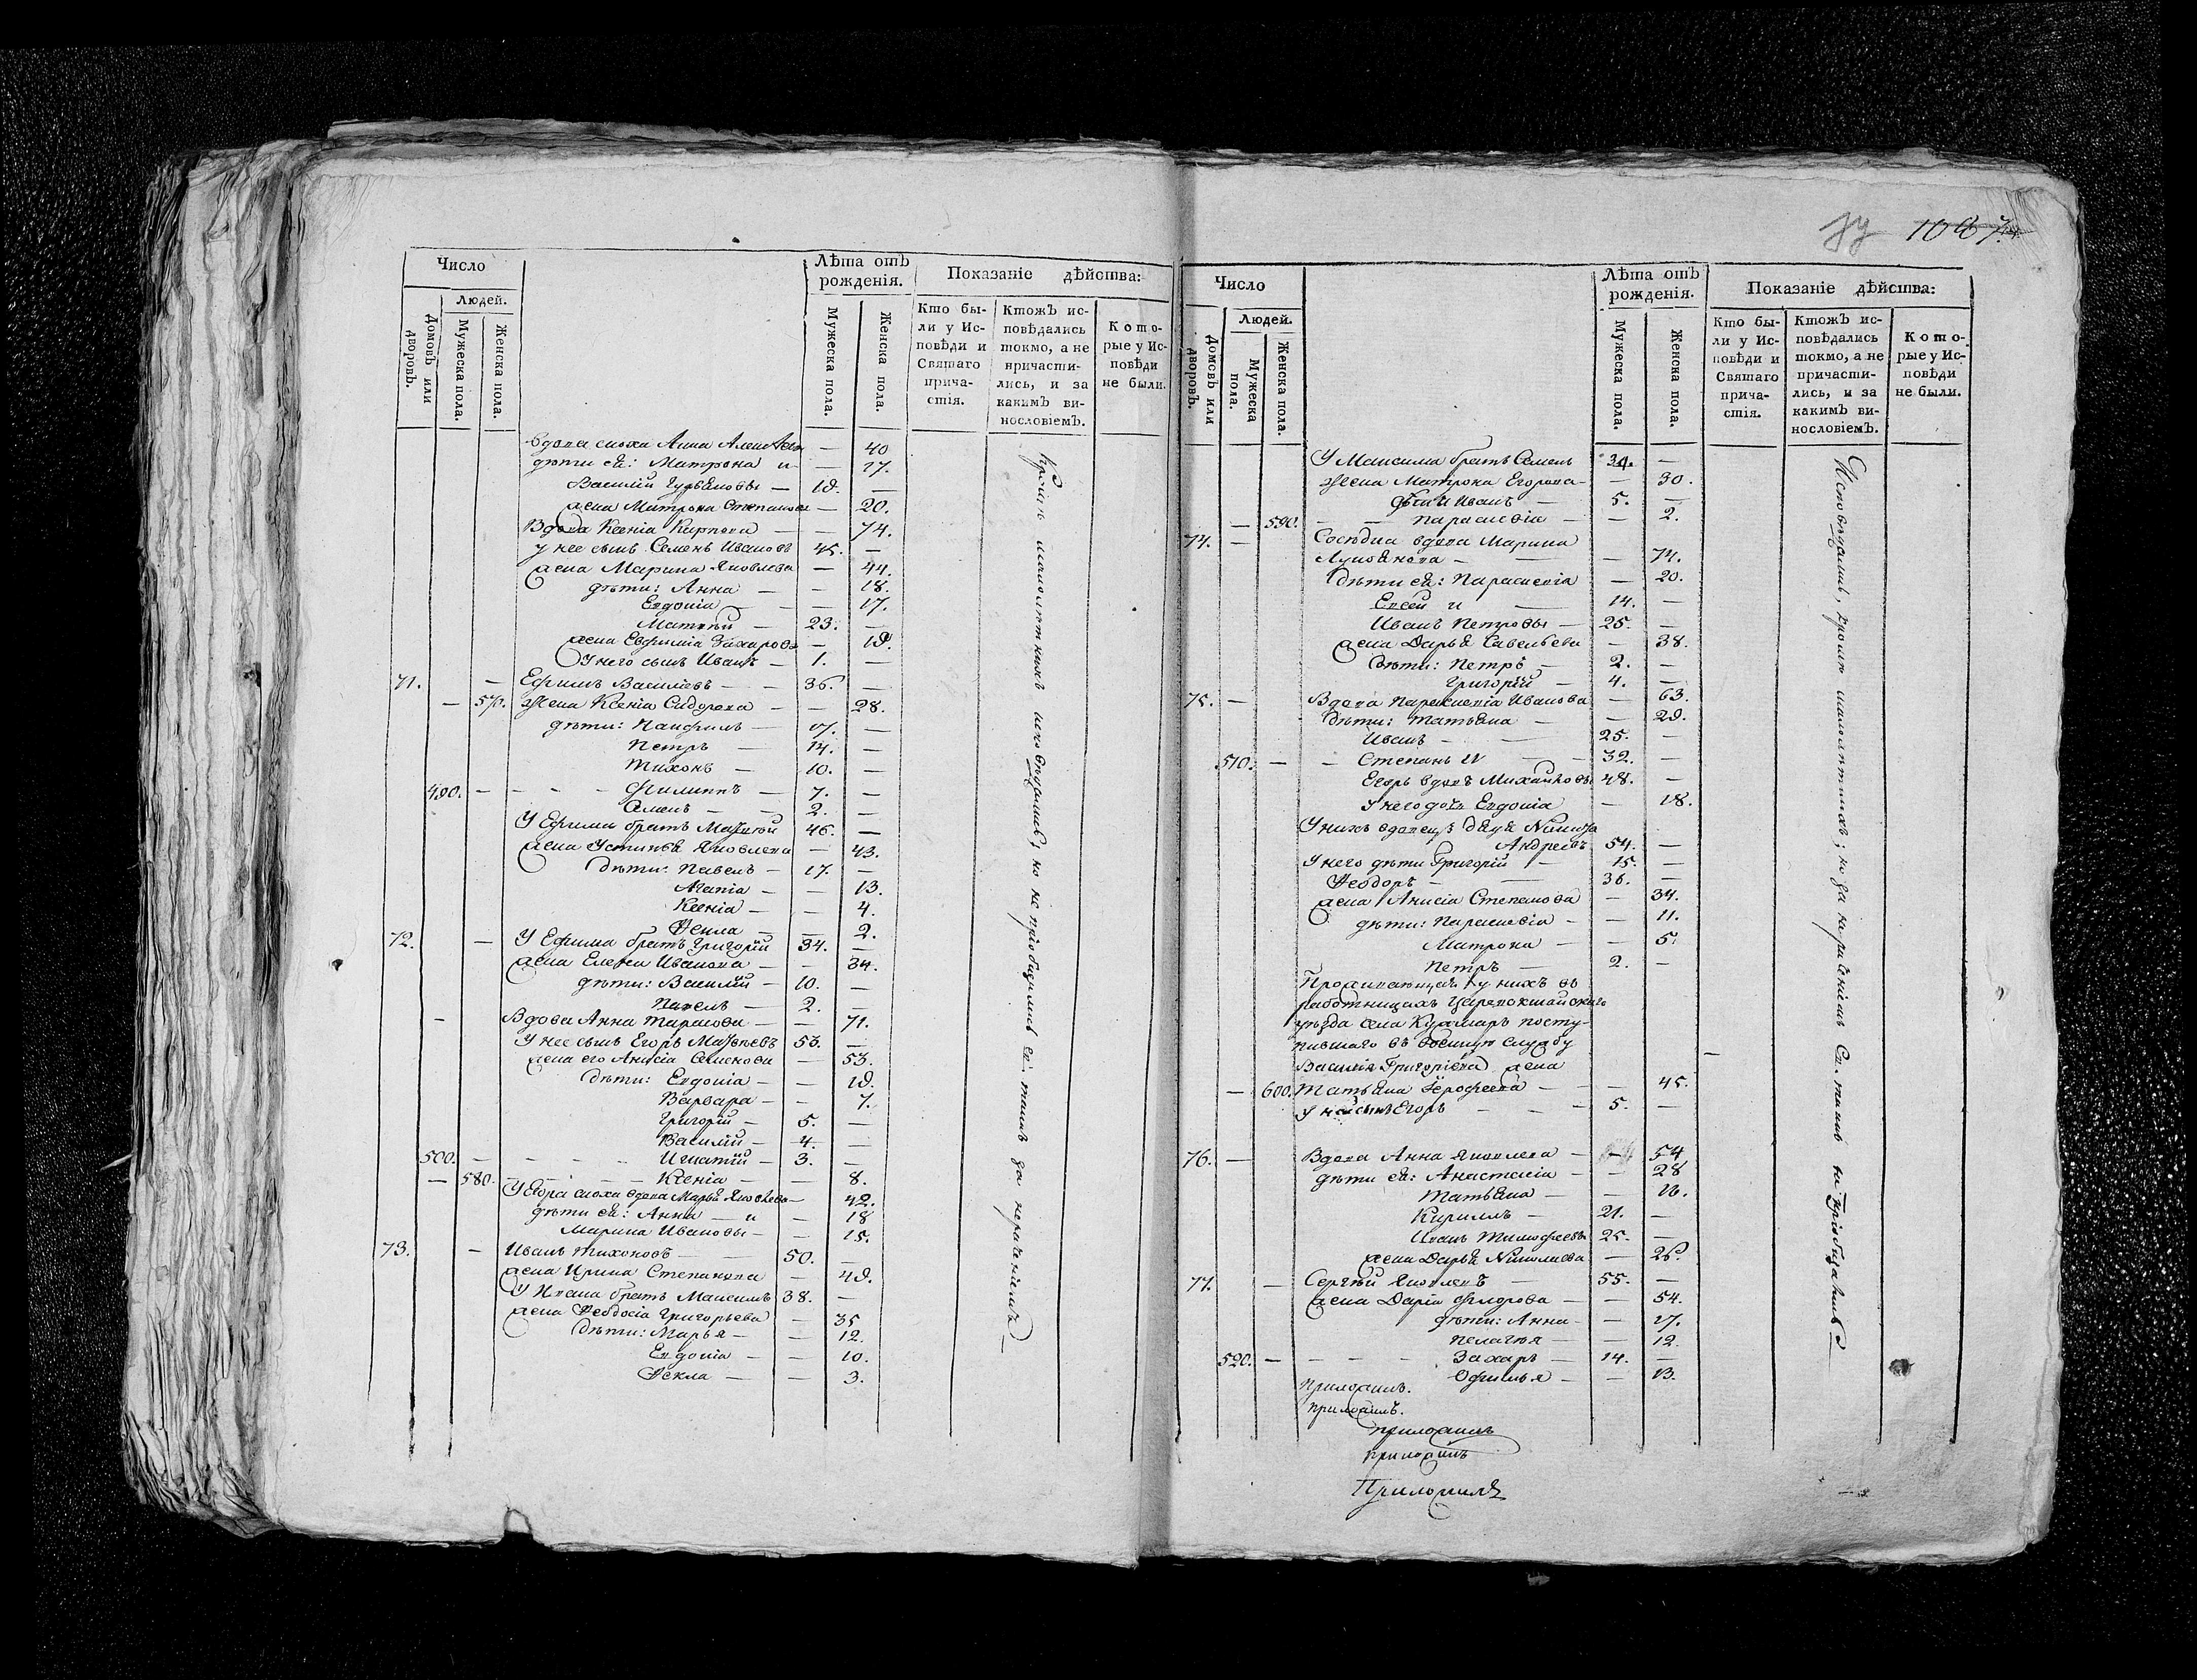 Число
Людей.
Домовъ или дворовъ.
Мужеска пола.
Женска пола.
Лѣта отъ рожденія.
Мужеска пола.
Женска пола.
Показаніе дѣйства:
Кто бы-
ли у Ис-
повѣди и
Святаго
прича-
стія.
Ктожъ ис-
повѣдались
токмо, а не
причасти-
лись, и за
какимъ ви-
нословіемъ.
Кото-
рые у Ис-
повѣди
не были.
вдова сноха Анна — 40
дѣти ея: Матрона и — 17.
Василій — 19. —
жена Матрона Степанова — 20.
Вдова Ксенія Карпова — 74.
у нее сынъ Семенъ Ивановъ 45. —
жена Марина Яковлева — 44.
дѣти: Анна — 18.
Евдокія — 17.
Матвѣй — 23. —
жена Евфимія Захарова — 19.
У него сынъ Иванъ — 1. —
71. — Ефимъ Василіевъ — 36. —
— 570. Жена Ксенія Сидорова — 28.
дѣти: Панфилъ — 17. —
Петръ — 14. —
Тихонъ — 10. —
490. — Филиппъ — 7. —
Семенъ — 2. —
У Ефима братъ Матвѣй 46. —
жена Устинья Яковлева — 43.
дѣти: Павелъ — 17. —
Агапія — 13.
Ксенія — 4.
Фекла — 2.
72. — У Ефима братъ Григорій 34. —
жена Елена Иванова — 34.
дѣти: Василій — 10. —
Павелъ — 2. —
— Вдова Анна Тарасова — 71.
У нее сынъ Егоръ Матвѣевъ 53. —
жена его Анисія Семенова — 53.
дѣти: Евдокія — 19.
Варвара — 7.
Григорій — 5. —
Василій — 4. —
500. — Игнатій — 3. —
— 580. — Ксенія — 8.
У Егора сноха вдова Марья Яковлева — 42.
дѣти ея: Анна и — 18
Марина Ивановы — 15.
73. — Иванъ Тихоновъ — 50. —
жена Ирина Степанова — 49.
У Ивана братъ Максимъ 38. —
жена Феодосія Григорьева — 35
дѣти: Марья — 12.
Евдокія — 10.
Фекла — 3.
Кромѣ малолѣтнихъ исповѣдались, но не пріобщились св. таинъ за нераченіемъ
1087.
Число
Людей.
Домовъ или дворовъ.
Мужеска пола.
Женска пола.
Лѣта отъ рожденія.
Мужеска пола.
Женска пола.
Показаніе дѣйства:
Кто бы-
ли у Ис-
повѣди и
Святаго
прича-
стія.
Ктожъ ис-
повѣдались
токмо, а не
причасти-
лись, и за
какимъ ви-
нословіемъ.
Кото-
рые у Ис-
повѣди
не были.
У Максима братъ Семенъ 34. —
Жена Матрона Егорова — 30.
дѣти Иванъ — 5. —
— 590. — Параскевія — 2.
74. — Сосѣдка вдова Марина
Лукоянова — 74.
дѣти ея: Параскевія — 20.
Евсей и — 14. —
Иванъ Петровы — 25. —
жена Дарья Савельева — 38.
дѣти: Петръ — 2. —
Григорій — 4. —
75. — Вдова Параскевія Иванова — 63.
дѣти: Татьяна — 29.
Иванъ — 25. —
510. — Степанъ и — 32. —
Егоръ вдовъ Михайловы 48. —
У него дочь Евдокія — 18.
У нихъ вдовецъ дядя Никита
Андреевъ 54. —
У него дѣти Григорій — 15. —
Феодоръ — 36. —
жена Анисія Степанова — 34.
дѣти: Параскевія — 11.
Матрона — 5.
Петръ — 2. —
Проживающая у нихъ въ
работницахъ Царевококшайскаго
уѣзда села Кужмаръ посту-
пившаго въ военную службу
Василія Григоріева жена
— 600. Татьяна Ерофеева — 45.
У нея сынъ Егоръ — 5. —
76. — Вдова Анна Яковлева — 54
дѣти ея: Анастасія — 28
Татьяна — 16.
Кириллъ — 21. —
Иванъ Тимофеевы 25. —
жена Дарья Николаева — 26.
77. — Сергѣй Яковлевъ — 55. —
жена Дарія Федорова — 54.
дѣти: Анна — 17.
Пелагея — 12
520. — Захаръ — 14. —
Офимья — 13.
приложилъ.
приложилъ.
приложилъ
приложилъ
Приложилъ
Исповѣдались, кромѣ малолѣтнихъ; но за нераченіемъ Св. таинъ не пріобщались